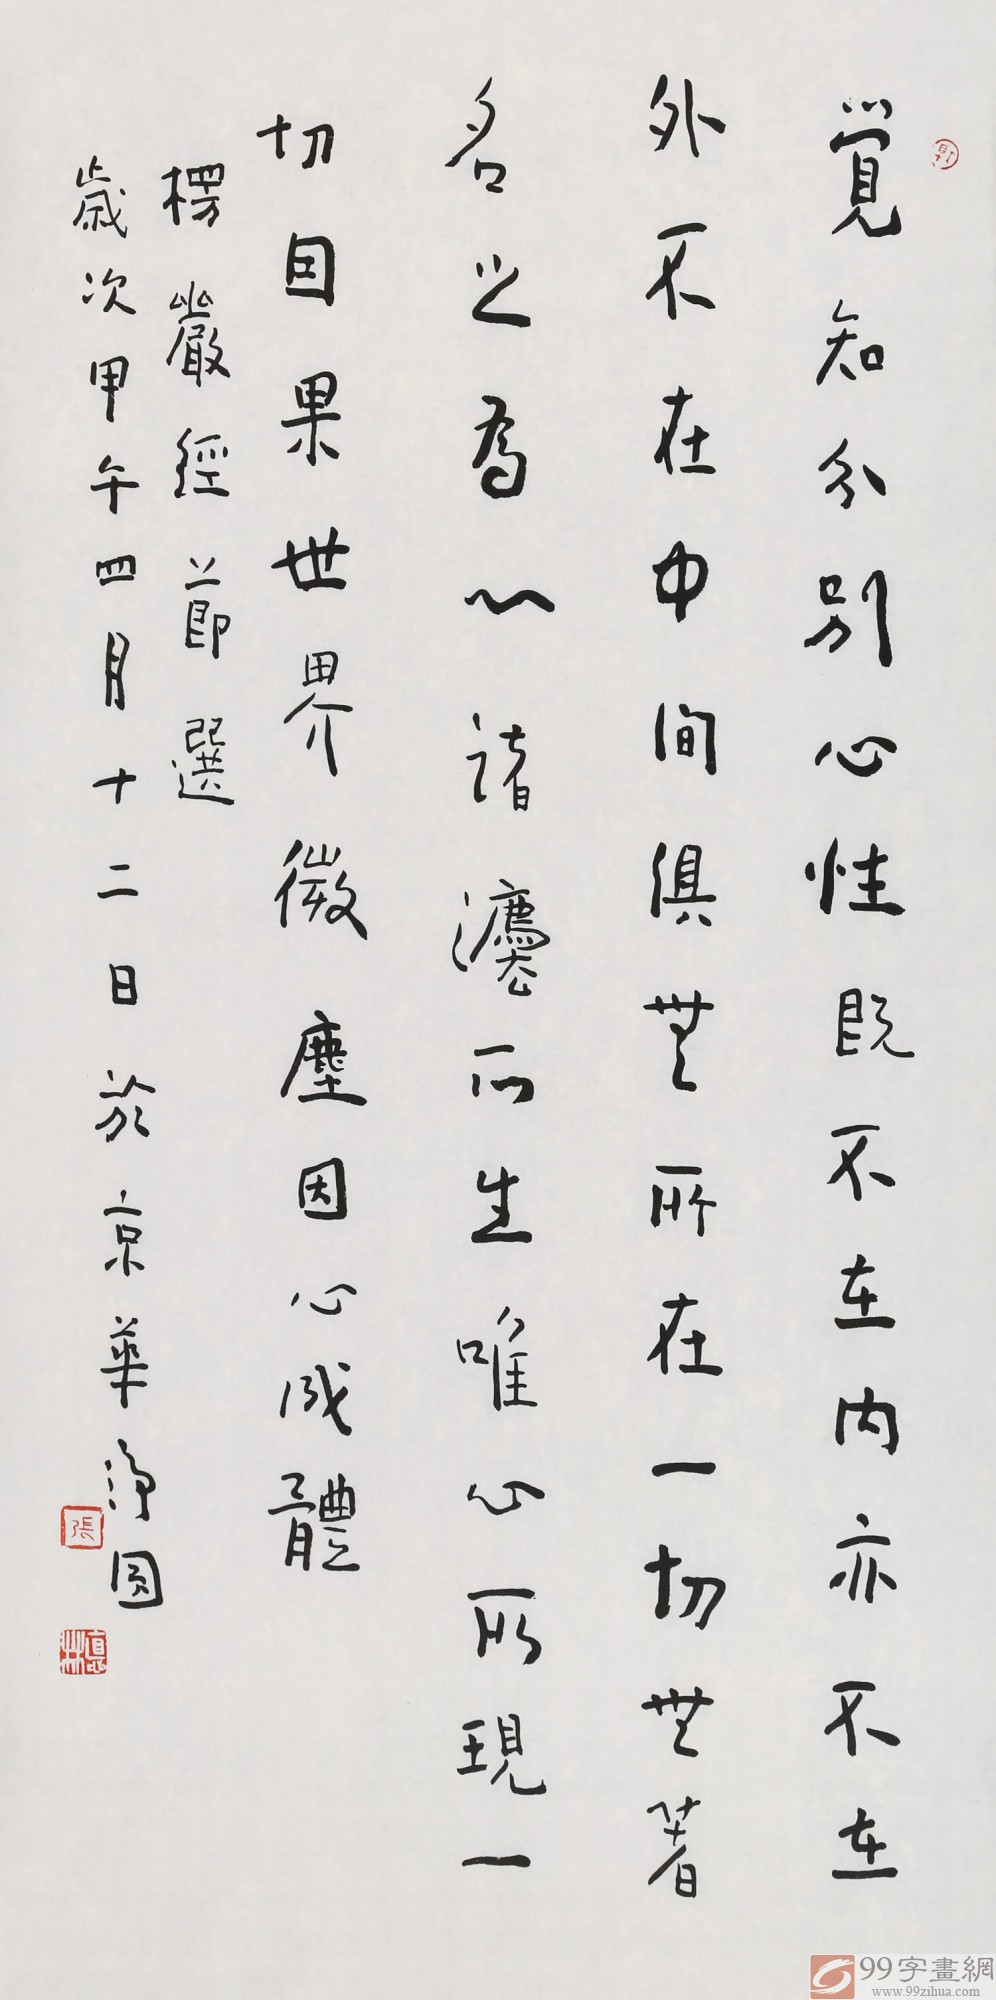 覺知分別心性既不在內亦不在
外不在中间俱無所在一切無著
名之為心諸灋所生唯心所現一
切因果世界微塵因心成體
楞嚴經節選
歲次甲午四月十二日於京華淨圓
張
99字畫網
www.99zihua.com